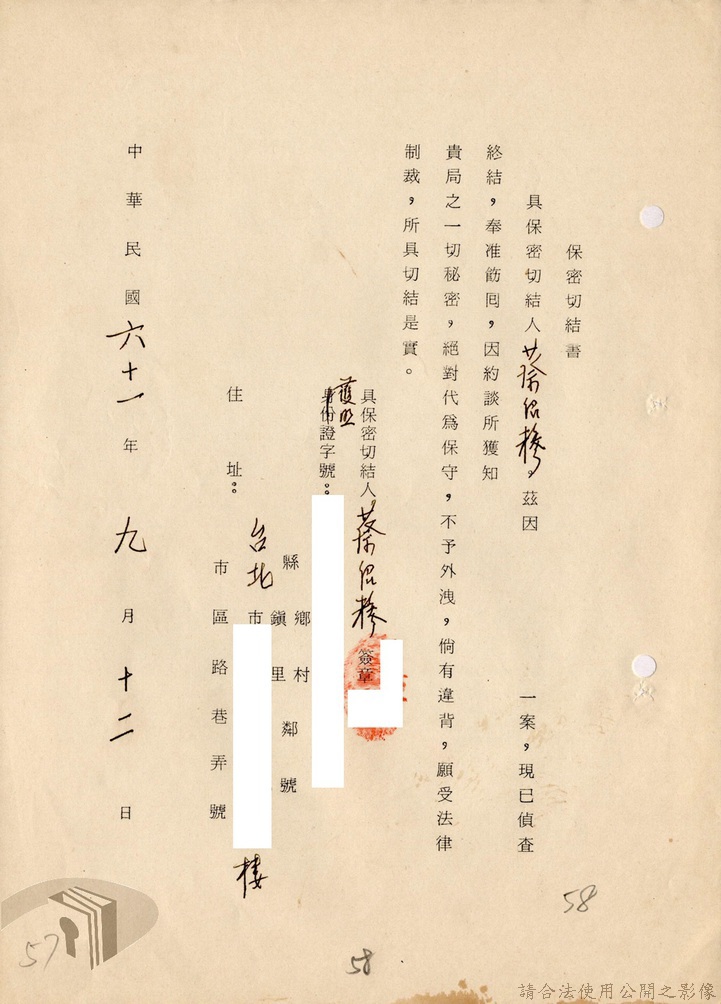 保密切結書
具保密切結人蔡紹，茲因 一案，現已偵查
終結，奉准飭回，因約談所獲知
貴局之一切秘密，絕對代爲保守，不予外洩，倘有違背，願受法律
制裁，所具切結是實。
具保密切結人 蔡紹 簽章
護照
身份證字號：
住址：
台北
縣
市
鄉
鎮
村
里
鄰
號
市區路巷弄號
樓
中華民國六十一年九月十二日
58
57
58
請合法使用公開之影像